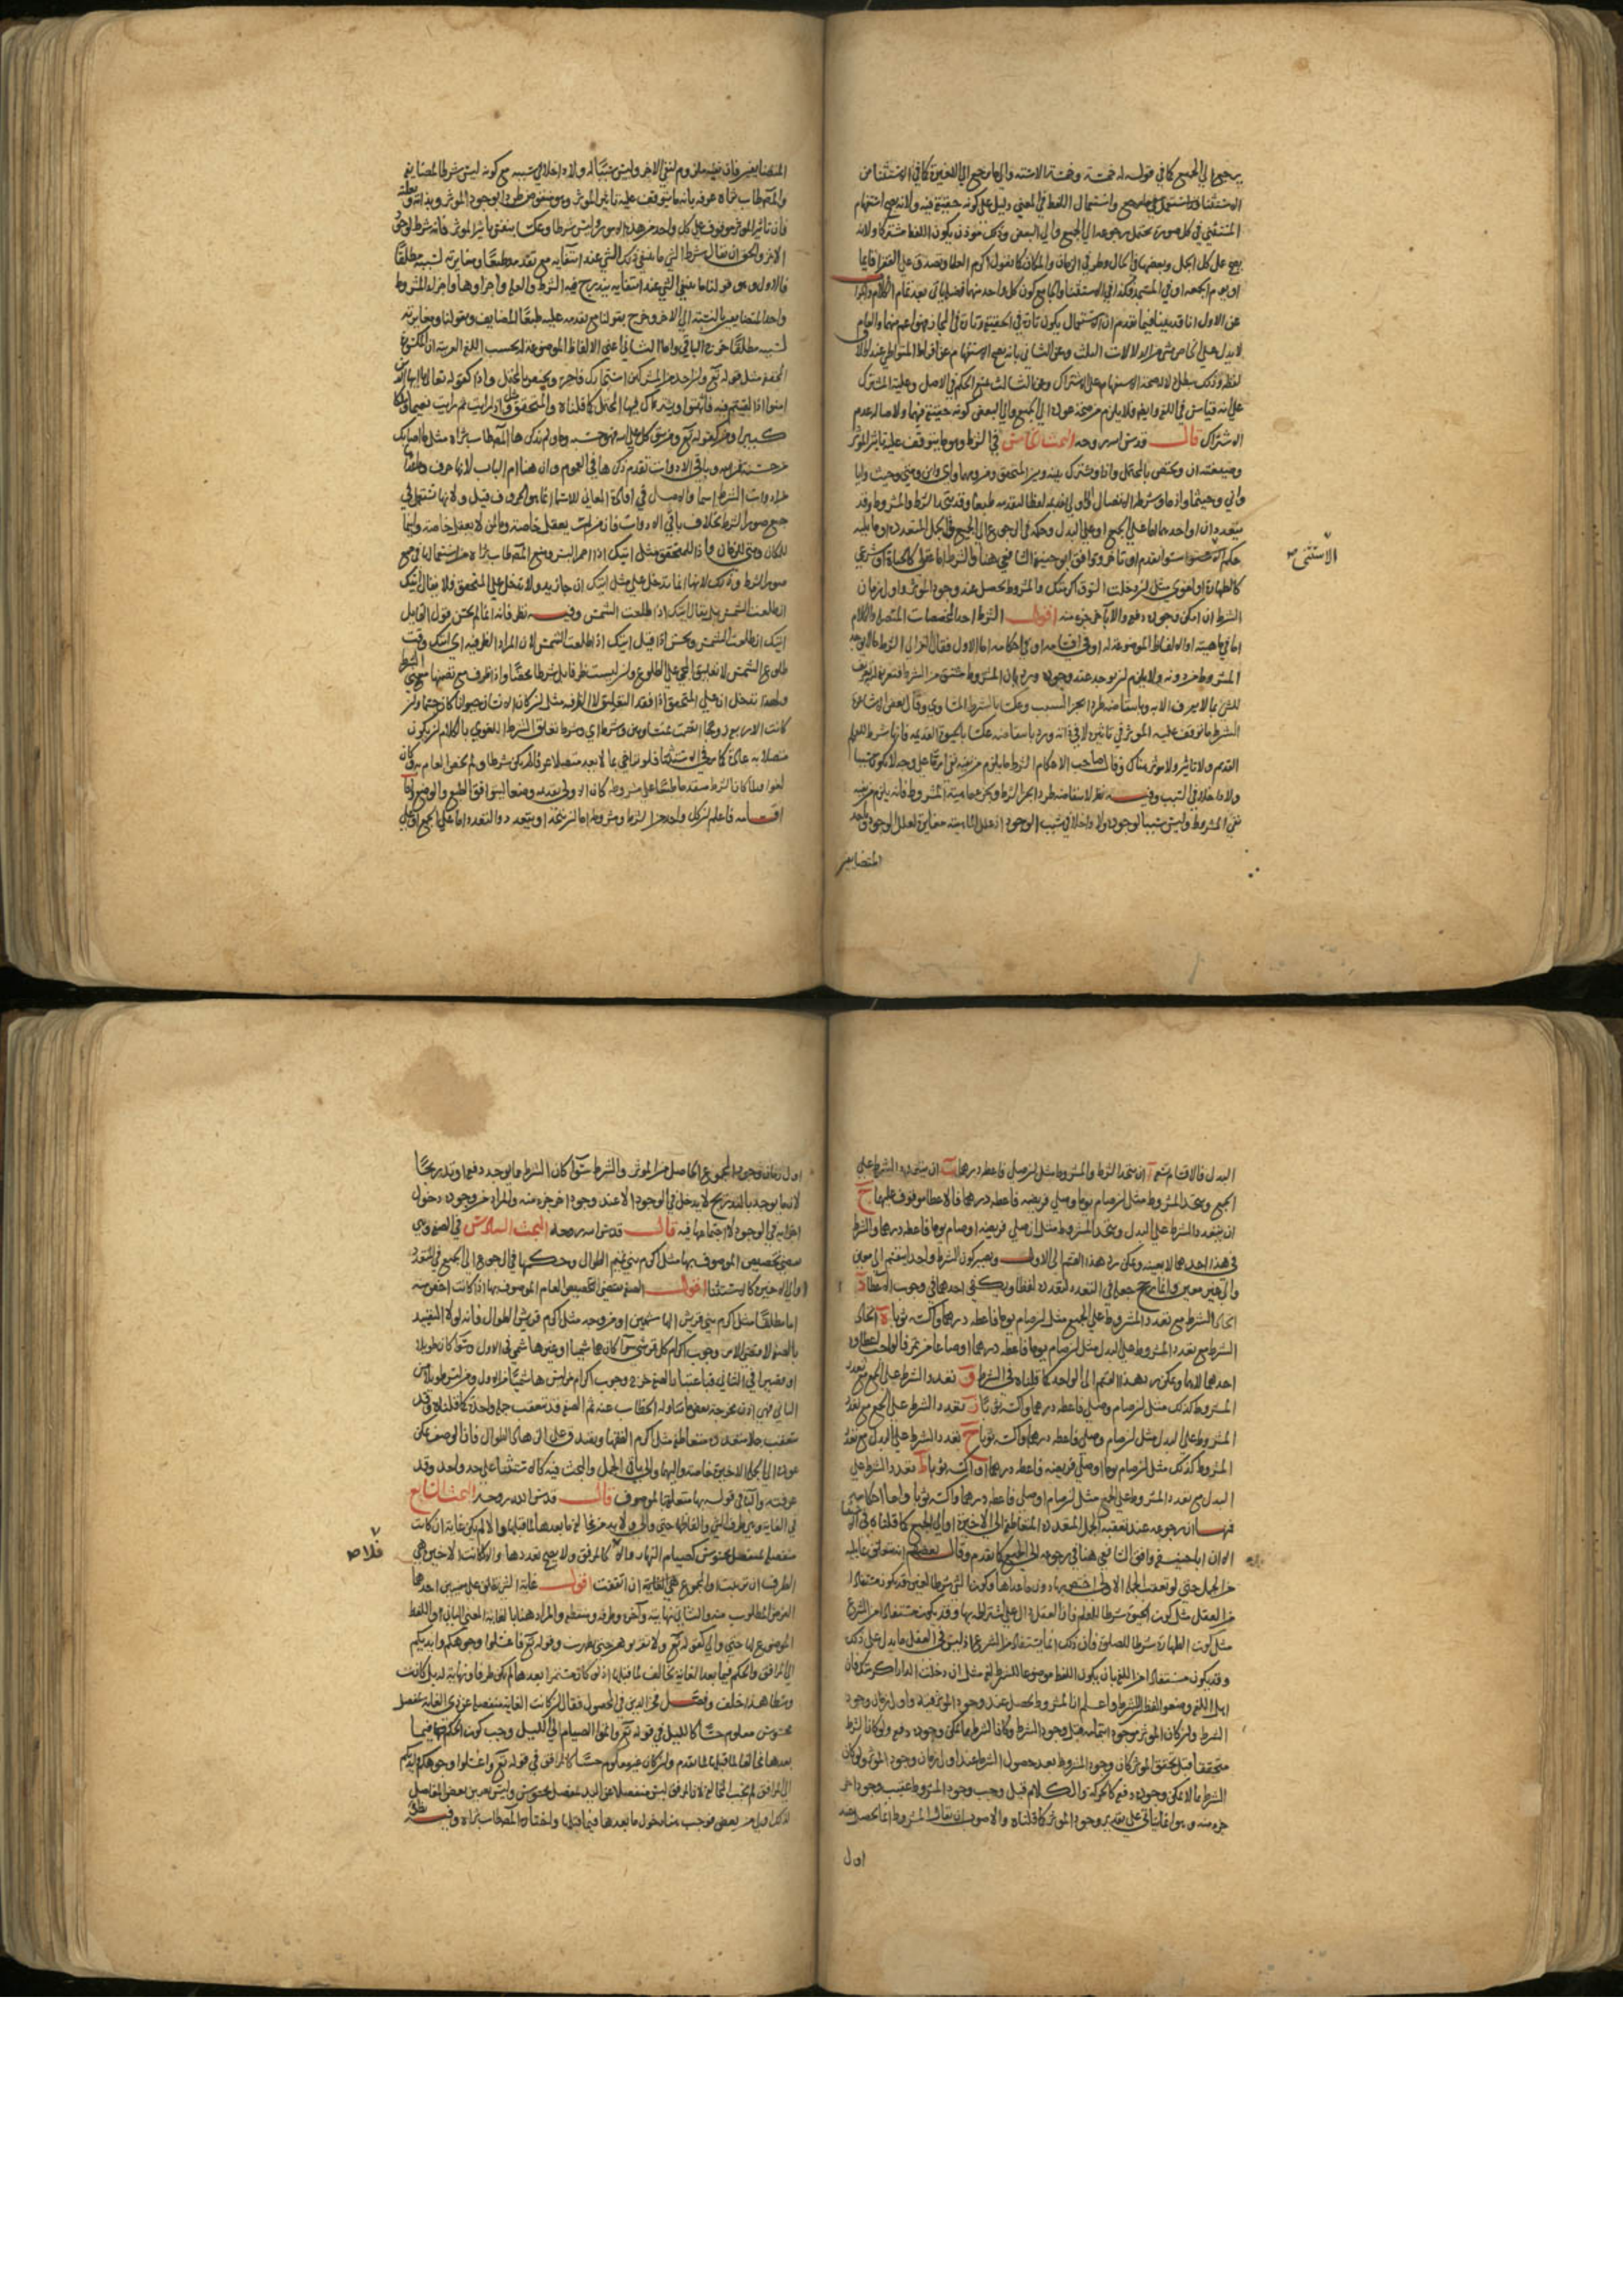 يرجع الى الجميع كما في قوله له خمسة وخمسة الا ستة والى ما يرجع الى الاخيرة كما في الاستثناء من
الاستثناء واستعمال اللفظ في المعنى دليل على كونه حقيقة فيه ولانه يصح استفهام
المستثنى في كل صورة يحتمل رجوعه الى الجميع والى البعض وذلك موذن بكون اللفظ مشتركا ولانه
يصح على كل الجمل وبعضها في الحال وظرفي الزمان والمكان كما نقول اكرم العلماء وتصدق على الفقراء قايما
او يوم الجمعة او في المسجد فكذا في الاستثناء والجامع كون كل واحد منها فضلة ياتي بعد تمام الكلام
عن الاول انا قد بينا فيما تقدم ان الاستعمال يكون تارة في الحقيقة وتارة في المجاز فهو اعم منهما والعام
لا يدل على الخاص بشي من الدلالات الثلث وعن الثاني بانه يصح الاستفهام عن افراد المتواطي عند اطلاق
لفظه وذلك يبطل دلالة صحة الاستفهام على الاشتراك وعن الثالث بمنع الحكم في الاصل وعلية المشترك
على انه قياس في اللغة وايضا فلا يلزم من صحة عوده الى الجميع والى البعض كونه حقيقة فيهما ولاصالة عدم
الاشتراك قال قدس الله روحه البحث الخامس في الشرط وهو ما يتوقف عليه تاثير المؤثر
وصيغته ان ويختص بالمحتمل واذا ويشترك بينه وبين المتحقق ومن ومهما واي واين ومتى وحيث
واني وحيثما واذما وشرطه الاتصال والاولى تقديمه لفظا لتقدمه طبعا وقد يتحد الشرط والمشروط وقد
يتعدد ان او احدهما اما على الجميع او على البدل وحكمه في الرجوع الى الجميع في الجمل المتعددة او ما يليه
حكم سواء تقدم او تاخر ووافق ابو حنيفة الشافعي هنا والشرط اما عقلي كالحياة او شرعي
كالطهارة او لغوي مثل ان دخلت السوق اكرمتك والمشروط يحصل عند وجود المؤثر واول زمان
الشرط ان امكن وجوده دفعة والا بآخر جزء منه اقول الشرط احد المخصصات المتصلة والكلام
اما في ماهيته او الالفاظ الموضوعة له او في اقسامه او في احكامه اما الاول فقال الغزالي الشرط ما لا يوجد
المشروط دونه ولا يلزم ان يوجد عند وجوده ويرد بان المشروط مشتق من الشرط فتعريفه به تعريف
للشي بما لا يعرف الا به وبانتقاضه طردا بجزء السبب وعكسا بالشرط المساوي وقال بعض الاشاعرة
الشرط ما توقف عليه المؤثر في تاثيره لا في ذاته ويرد بانتقاضه عكسا بالحيوة القديمة فانها شرط للعلم
القديم ولا تاثير ولا مؤثر هناك وقال صاحب الاحكام الشرط ما يلزم من نفيه نفي امر ما على وجه لا يكون سببا
ولا داخلا في السبب وفيه نظر لانتقاضه طردا بجزء الشرط وبجزء ماهية المشروط فانه يلزم من نفيه
نفي المشروط وليس سببا لوجوده ولا داخلا في سبب الوجود اذ علل الماهية مغايرة لعلل الوجود
المتضايفين
الاستثنى صح
المتضايفين فان نفيه ملزوم لنفي الاخر وليس سببا له ولا داخلا في سببه مع كونه ليس شرطا لمضايفه
والمص طاب ثراه عرفه بانه ما يتوقف عليه تاثير المؤثر وهو منقوض طردا بوجود المؤثر وبذاته
فان تاثير المؤثر موقوف على كل واحد من هذه الامور وليس شرطا وعكسا بنفي تاثير المؤثر فانه شرط لوجود
الاثر والحق ان يقال شرط الشي ما ينتفي ذلك الشي عند انتفايه مع تقدمه طبعا ومغايرته لسببه مطلقا
فالاول وهو قولنا ما ينتفي الشي عند انتفايه يندرج فيه الشرط والعلة واجزاوها واجزاء المشروط
واحد المتضايفين بالنسبة الى الاخر وخرج بقولنا مع تقدمه عليه طبعا المضايف وبقولنا ومغايرته
لسببه مطلقا خرج الباقي واما الثاني اعني الالفاظ الموضوعة له بحسب اللغة العربية
المخففة مثل قوله تعالى وان احد من المشركين استجارك فاجره ويختص بالمحتمل واذا كقوله تعالى يا ايها الذين
امنوا اذا لقيتم فئة فاثبتوا ويشترك فيها المحتمل كما قلناه والمتحقق واذا رايت ثم رايت نعيما وملكا
كبيرا ومن كقوله تعالى ومن يتوكل على الله فهو حسبه وما ولم يذكرها المص طاب ثراه مثل ما اصابك
من حسنة فمن الله وباقي الادوات تقدم ذكرها في العموم وان هذا ام الباب لانها حرف
ادوات الشرط اسما والاصل في افادة المعاني للاسماء انما هو الحروف قيل ولانها تستعمل في
جميع صور الشرط بخلاف باقي الادوات فان من لمن يعقل خاصة وما لمن لا يعقل خاصة واينما
للمكان ومتى للزمان واذا للمتحقق مثل اتيك اذا احمر البسر ومنع المص طاب ثراه من استعمالها في جميع
صور الشرط وذلك لانها انما تدخل على مثل اتيك ان جاء زيد ولا تدخل على المتحقق فلا يقال اتيك
ان طلعت الشمس بل يقال اتيك اذا طلعت الشمس وفيه نظر فانه انما لم يحسن قول القايل
اتيك ان طلعت الشمس وحسن اذا قيل اتيك اذا طلعت الشمس لان المراد الظرفية اي اتيك وقت
طلوع الشمس لا تعليق المجي على الطلوع
ولهذا تدخل ان على المتحقق اذا قصد التعليق لا الظرفية مثل ان كان الانسان حيوانا كان جسما وان
كانت الاربعة زوجا انقسمت بمتساويين وشرطه اي وشرط تعلق الشرط اللغوي بالكلام ان يكون
متصلا به عادة كما مر في الاستثناء فلو تراخى بما لا يعد متصلا عرفا لم يكن شرطا ولم يخص العام به وكان
لغوا ولما كان الشرط متقدما طبعا على مشروطه كان الاولى تقديمه وضعا ليتوافق الطبع والوضع
اقسامه فاعلم ان كل واحد من الشرط ومشروطه اما ان يتحد او يتعدد والتعدد اما على الجميع او على
البدل فالاقسام تسعة آ ان يتحد الشرط والمشروط مثل ان صلى فاعطه درهما ب ان يتعدد الشرط على
الجميع ويتحد المشروط مثل ان صام يوما وصلى فريضة فاعطه درهما فالاعطاء موقوف عليهما ج
ان يتعدد الشرط على البدل ويتحد المشروط مثل ان صلى فريضة او صام يوما فاعطه درهما والشرط
في هذا احدهما لا بعينه ويمكن رد هذا القسم الى الاول ويصير كون الشرط واحدا ينقسم الى معين
والى غير معين وانما رجح جعله في التعدد لتعدده لفظا ويكفي احدهما في وجوب الاعطاء د
اتحاد الشرط مع تعدد المشروط على الجميع مثل ان صام يوما فاعطه درهما واكسه ثوبا ه اتحاد
الشرط مع تعدد المشروط على البدل مثل ان صام يوما فاعطه درهما او صاعا من تمر فالواجب اعطاوه
احدهما لا هما ويمكن رد هذا القسم الى الواحد كما قلناه في الشرط و تعدد الشرط على الجمع مع تعدد
المشروط كذلك مثل ان صام وصلى فاعطه درهما واكسه ثوبا ز تعدد الشرط على الجمع مع تعدد
المشروط على البدل مثل ان صام وصلى فاعطه درهما او اكسه ثوبا ح تعدد الشرط على البدل مع تعدد
المشروط كذلك مثل ان صام يوما او صلى فريضة فاعطه درهما او اكسه ثوبا ط تعدد الشرط على
البدل مع تعدد المشروط على الجمع مثل ان صام او صلى فاعطه درهما واكسه ثوبا واما احكامه
فمنها ان رجوعه عند تعقبه الجمل المتعددة المتعاطفة الى الاخيرة او الى الجميع كما قلناه في
الا ان ابا حنيفة وافق الشافعي هنا في رجوعه الى الجميع كما تقدم وقال بعضهم انه يتعلق بما يليه
من الجمل حتى لو تعقب الجملة الاولى اختص بها دون ما عداها وكون الشي شرطا لغيره قد يكون مستفادا
من العقل مثل كون الحيوة شرطا للعلم فان العقل دال على اشتراطه بها وقد يكون مستفادا من الشرع
مثل كون الطهارة شرطا للصلوة فان ذلك انما يستفاد من الشرع اذ ليس في العقل ما يدل على ذلك
وقد يكون مستفادا من اللغة بان يكون اللفظ موضوعا للشرط لغة مثل ان دخلت الدار اكرمتك فان
اهل اللغة وضعوا لفظ ان للشرط واعلم ان المشروط يحصل عند وجود المؤثر فيه واول زمان وجود
الشرط وان كان المؤثر موجودا بتمامه قبل وجود الشرط وكان الشرط مما يمكن وجوده دفعة ولو كان الشرط
متحققا قبل تحقق المؤثر كان وجود المشروط بعد حصول الشرط عند اول زمان وجود المؤثر ولو كان
الشرط مما لا يمكن وجوده دفعة كالحركة والكلام قيل وجب وجود المشروط عقيب وجود اخر
جزء منه وهو انما ياتي على تقدير وجود المؤثر كما قلناه والاصوب ان يقال المشروط انما يحصل عند
اول
اول زمان وجود المجموع الحاصل من المؤثر والشرط سواء كان الشرط مما يوجد دفعة او تدريجا
لان ما يوجد بالتدريج لا يدخل في الوجود الا عند وجود اخر جزء منه والمراد من وجوده دخول
اجزايه في الوجود لا اجتماعها فيه قال قدس الله روحه البحث السادس في الصفة وهي
تقتضي تخصيص الموصوف بها مثل اكرم بني تميم الطوال وحكمها في الرجوع الى الجميع في المتعدد
او الى الاخيرة كالاستثناء اقول الصفة تقتضي تخصيص العام الموصوف بها اذا كانت اخص منه
اما مطلقا مثل اكرم بني قريش الهاشميين او من وجه مثل اكرم قريش الطوال فانه لولا التقييد
بالصفة لاقتضى الامر وجوب اكرام كل قرشي سواء كان هاشميا او غير هاشمي في الاول وسواء كان طويلا
او قصيرا في الثاني فباعتبار الصفة خرج وجوب اكرام من ليس هاشميا في الاول ومن ليس طويلا من
الثاني فهي اذن مخرجة بعض ما تناوله الخطاب عنه ثم الصفة قد تتعقب جملة واحدة كما قلناه وقد
تتعقب جملا متعددة متعاطفة مثل اكرم الفقهاء وتصدق على الزهاد الطوال فان الوصف يمكن
عوده الى الجملة الاخيرة خاصة واليها والى باقي الجمل والبحث فيه كالاستثناء على حد واحد وقد
عرفته والباء في قوله بها متعلقة بالموصوف قال قدس الله روحه البحث السابع
في الغاية وهي طرف الشي والفاظها حتى والى ولا بد من مخالفة ما بعدها لما قبلها والا لم يكن غاية ان كانت
منفصلة بمفصل محسوس كصيام النهار والا كالمرفق ولا يصح تعددها وان كانت الاخيرة هي
الطرف ان ترتبت والمجموع هي الغاية ان اتفقت اقول غاية الشي تطلق على معنيين احدهما
الغرض المطلوب منه والثاني نهايته وآخره وطرفه ومنقطعه والمراد هنا بالغاية المعنى الثاني واللفظ
الموضوع لها حتى والى كقوله تعالى ولا تقربوهن حتى يطهرن وقوله تعالى فاغسلوا وجوهكم وايديكم
الى المرافق والحكم فيما بعد الغاية يخالف لما قبلها اذ لو كان مستمرا بعدها لم يكن طرفا ونهاية له بل كانت
وسطا هذا خلف وفصل فخر الدين في المحصول فقال ان كانت الغاية منفصلة عن ذي الغاية بمفصل
محسوس معلوم حسا كالليل في قوله تعالى واتموا الصيام الى الليل وجب كون الحكم فيما
بعدها مخالفا لما قبلها لما تقدم وان كان غير معلوم حسا كالمرافق في قوله تعالى واغسلوا وجوهكم وايديكم
الى المرافق لم يجب المخالفة لان المرفق ليس منفصلا عن اليد بمفصل محسوس وليس تعيين بعض المفاصل
لذلك اولى من بعض فوجب هنا دخول ما بعدها فيما قبلها واختاره المص طاب ثراه وفيه نظر
فلا صح